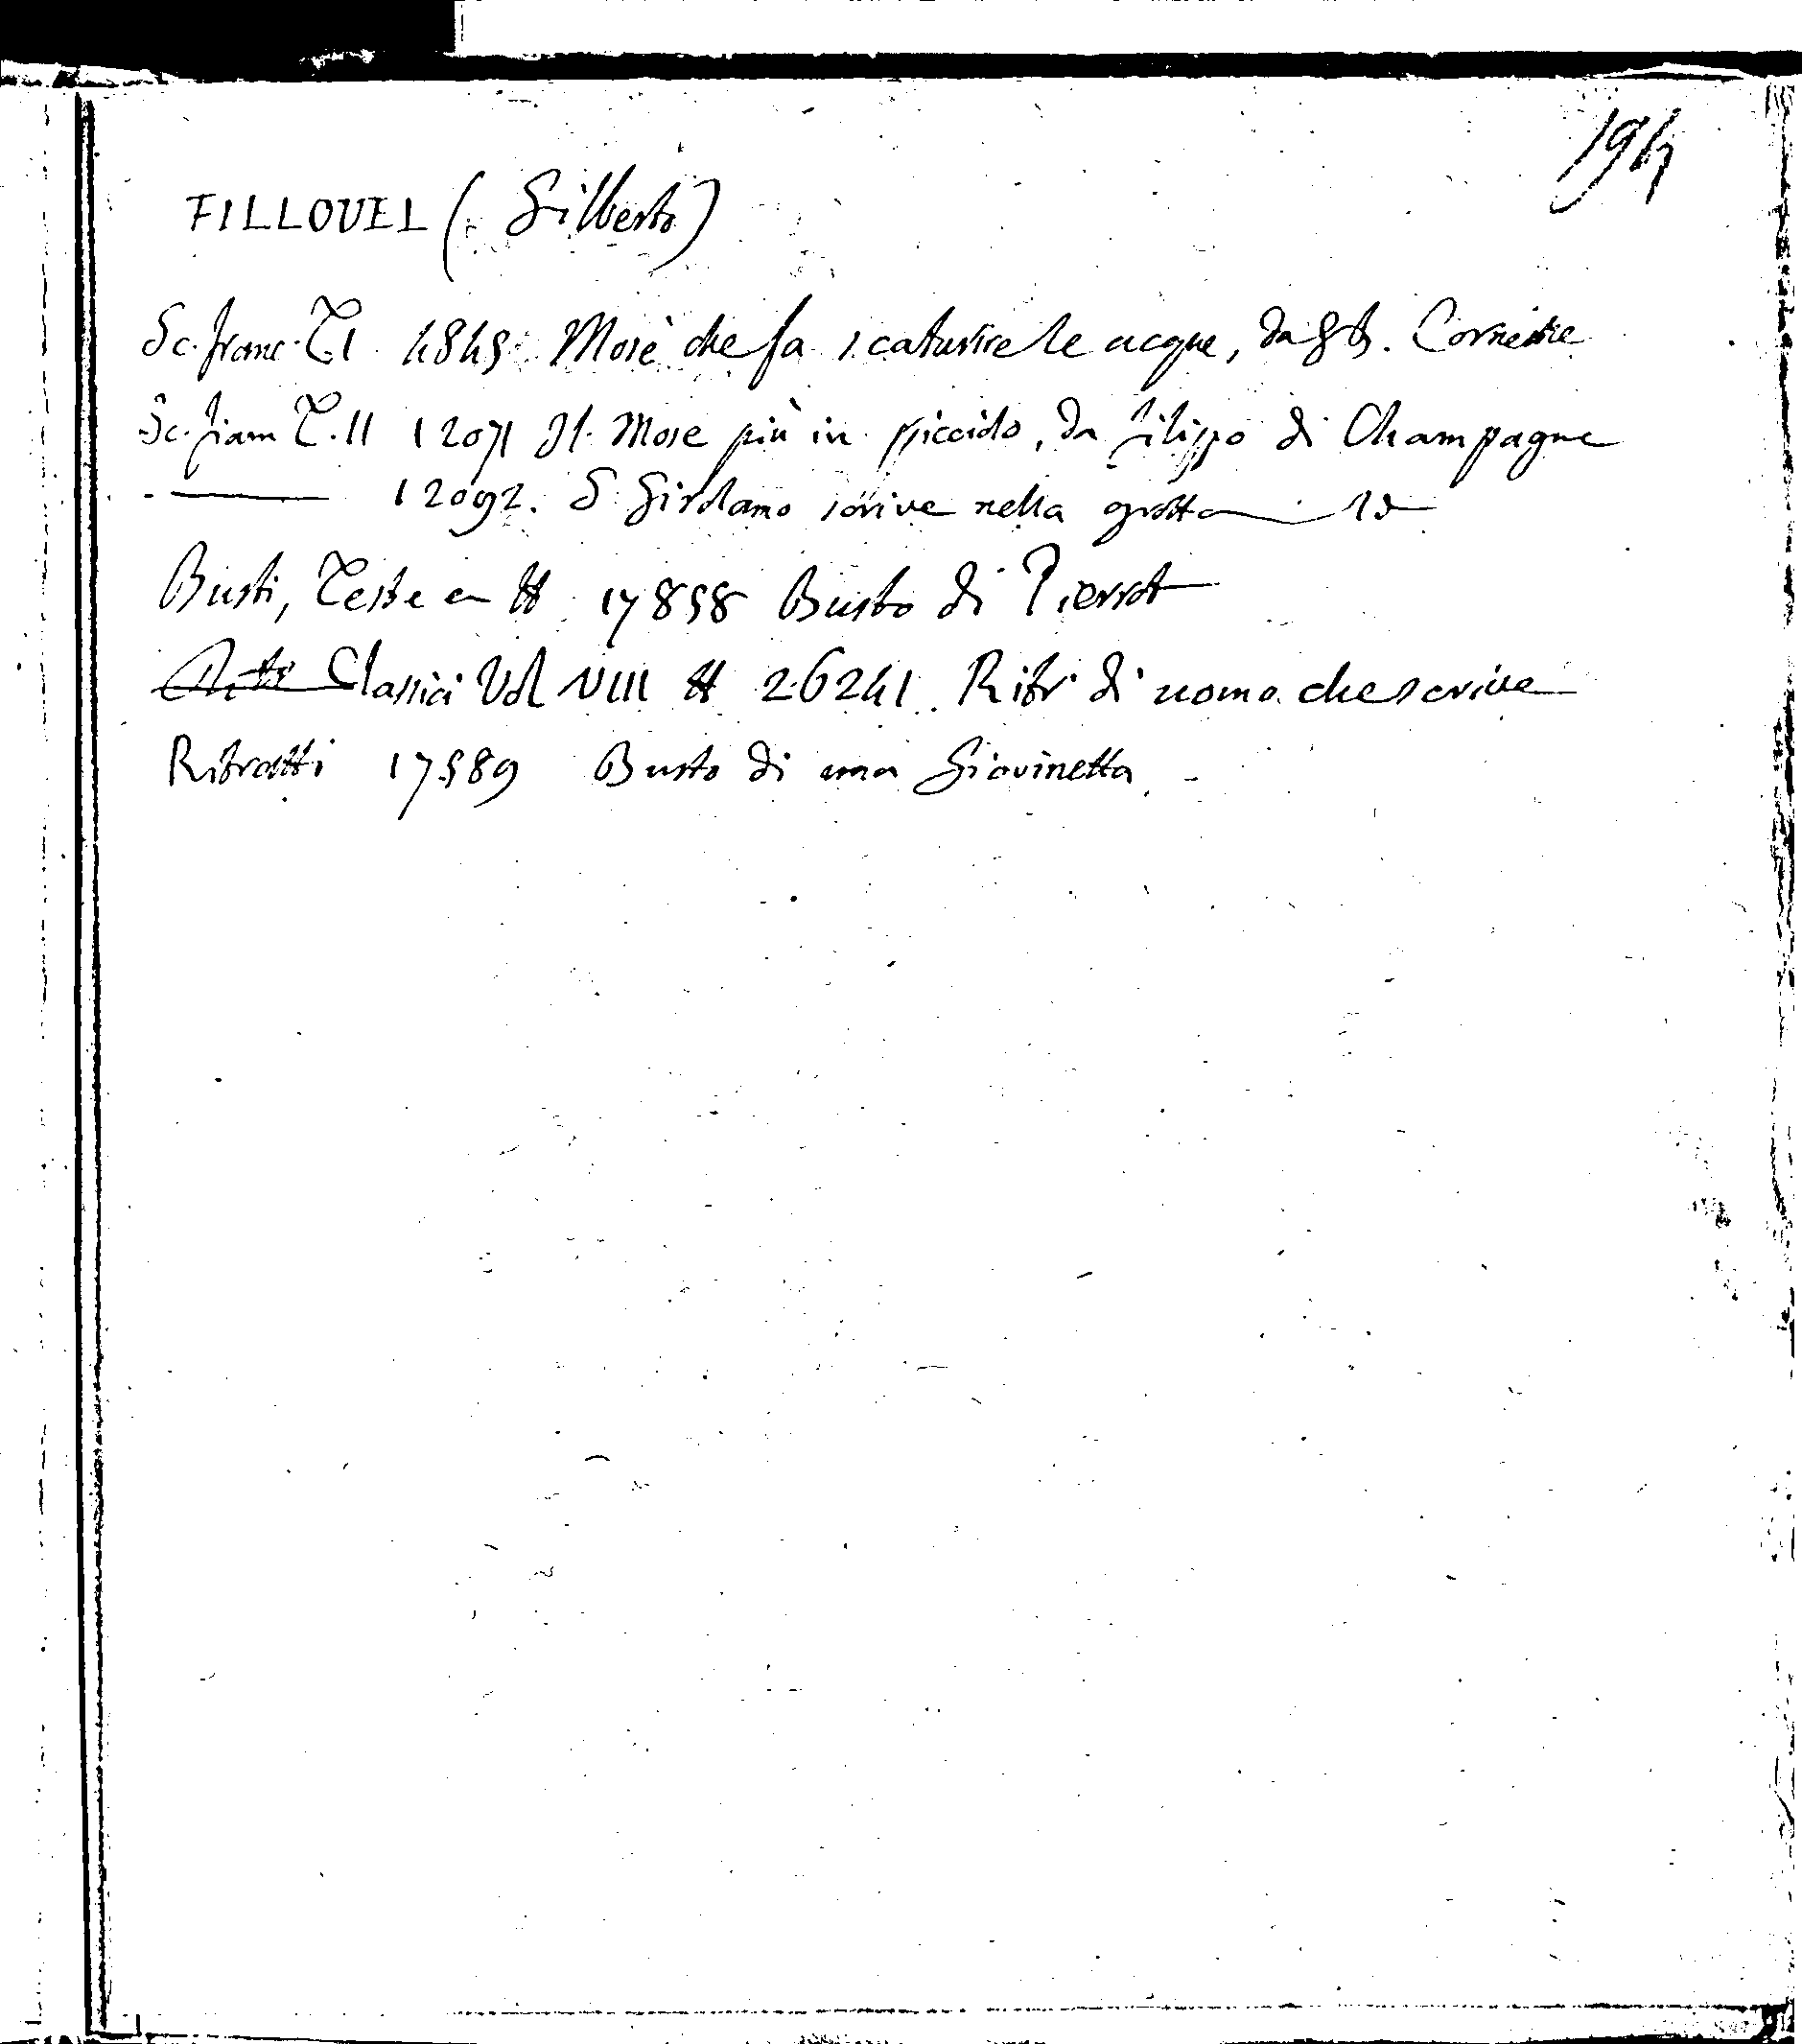 194
FILLOUEL (Gilberto)
Sc. franc. T. I 4845 Mosè che fa scaturire le acque, da Corneille
Sc. fiam T. II 12071 Il Mose più in piccolo, da Filippo di Champagne
——— 12092. S Girolamo scrive nella grotta — Id
Busti, Teste 17858 Busto di Pierrot
Classici Vol VIII 26241 Ritr di uomo che scrive
Ritratti 17589 Busto di una Giovinetta